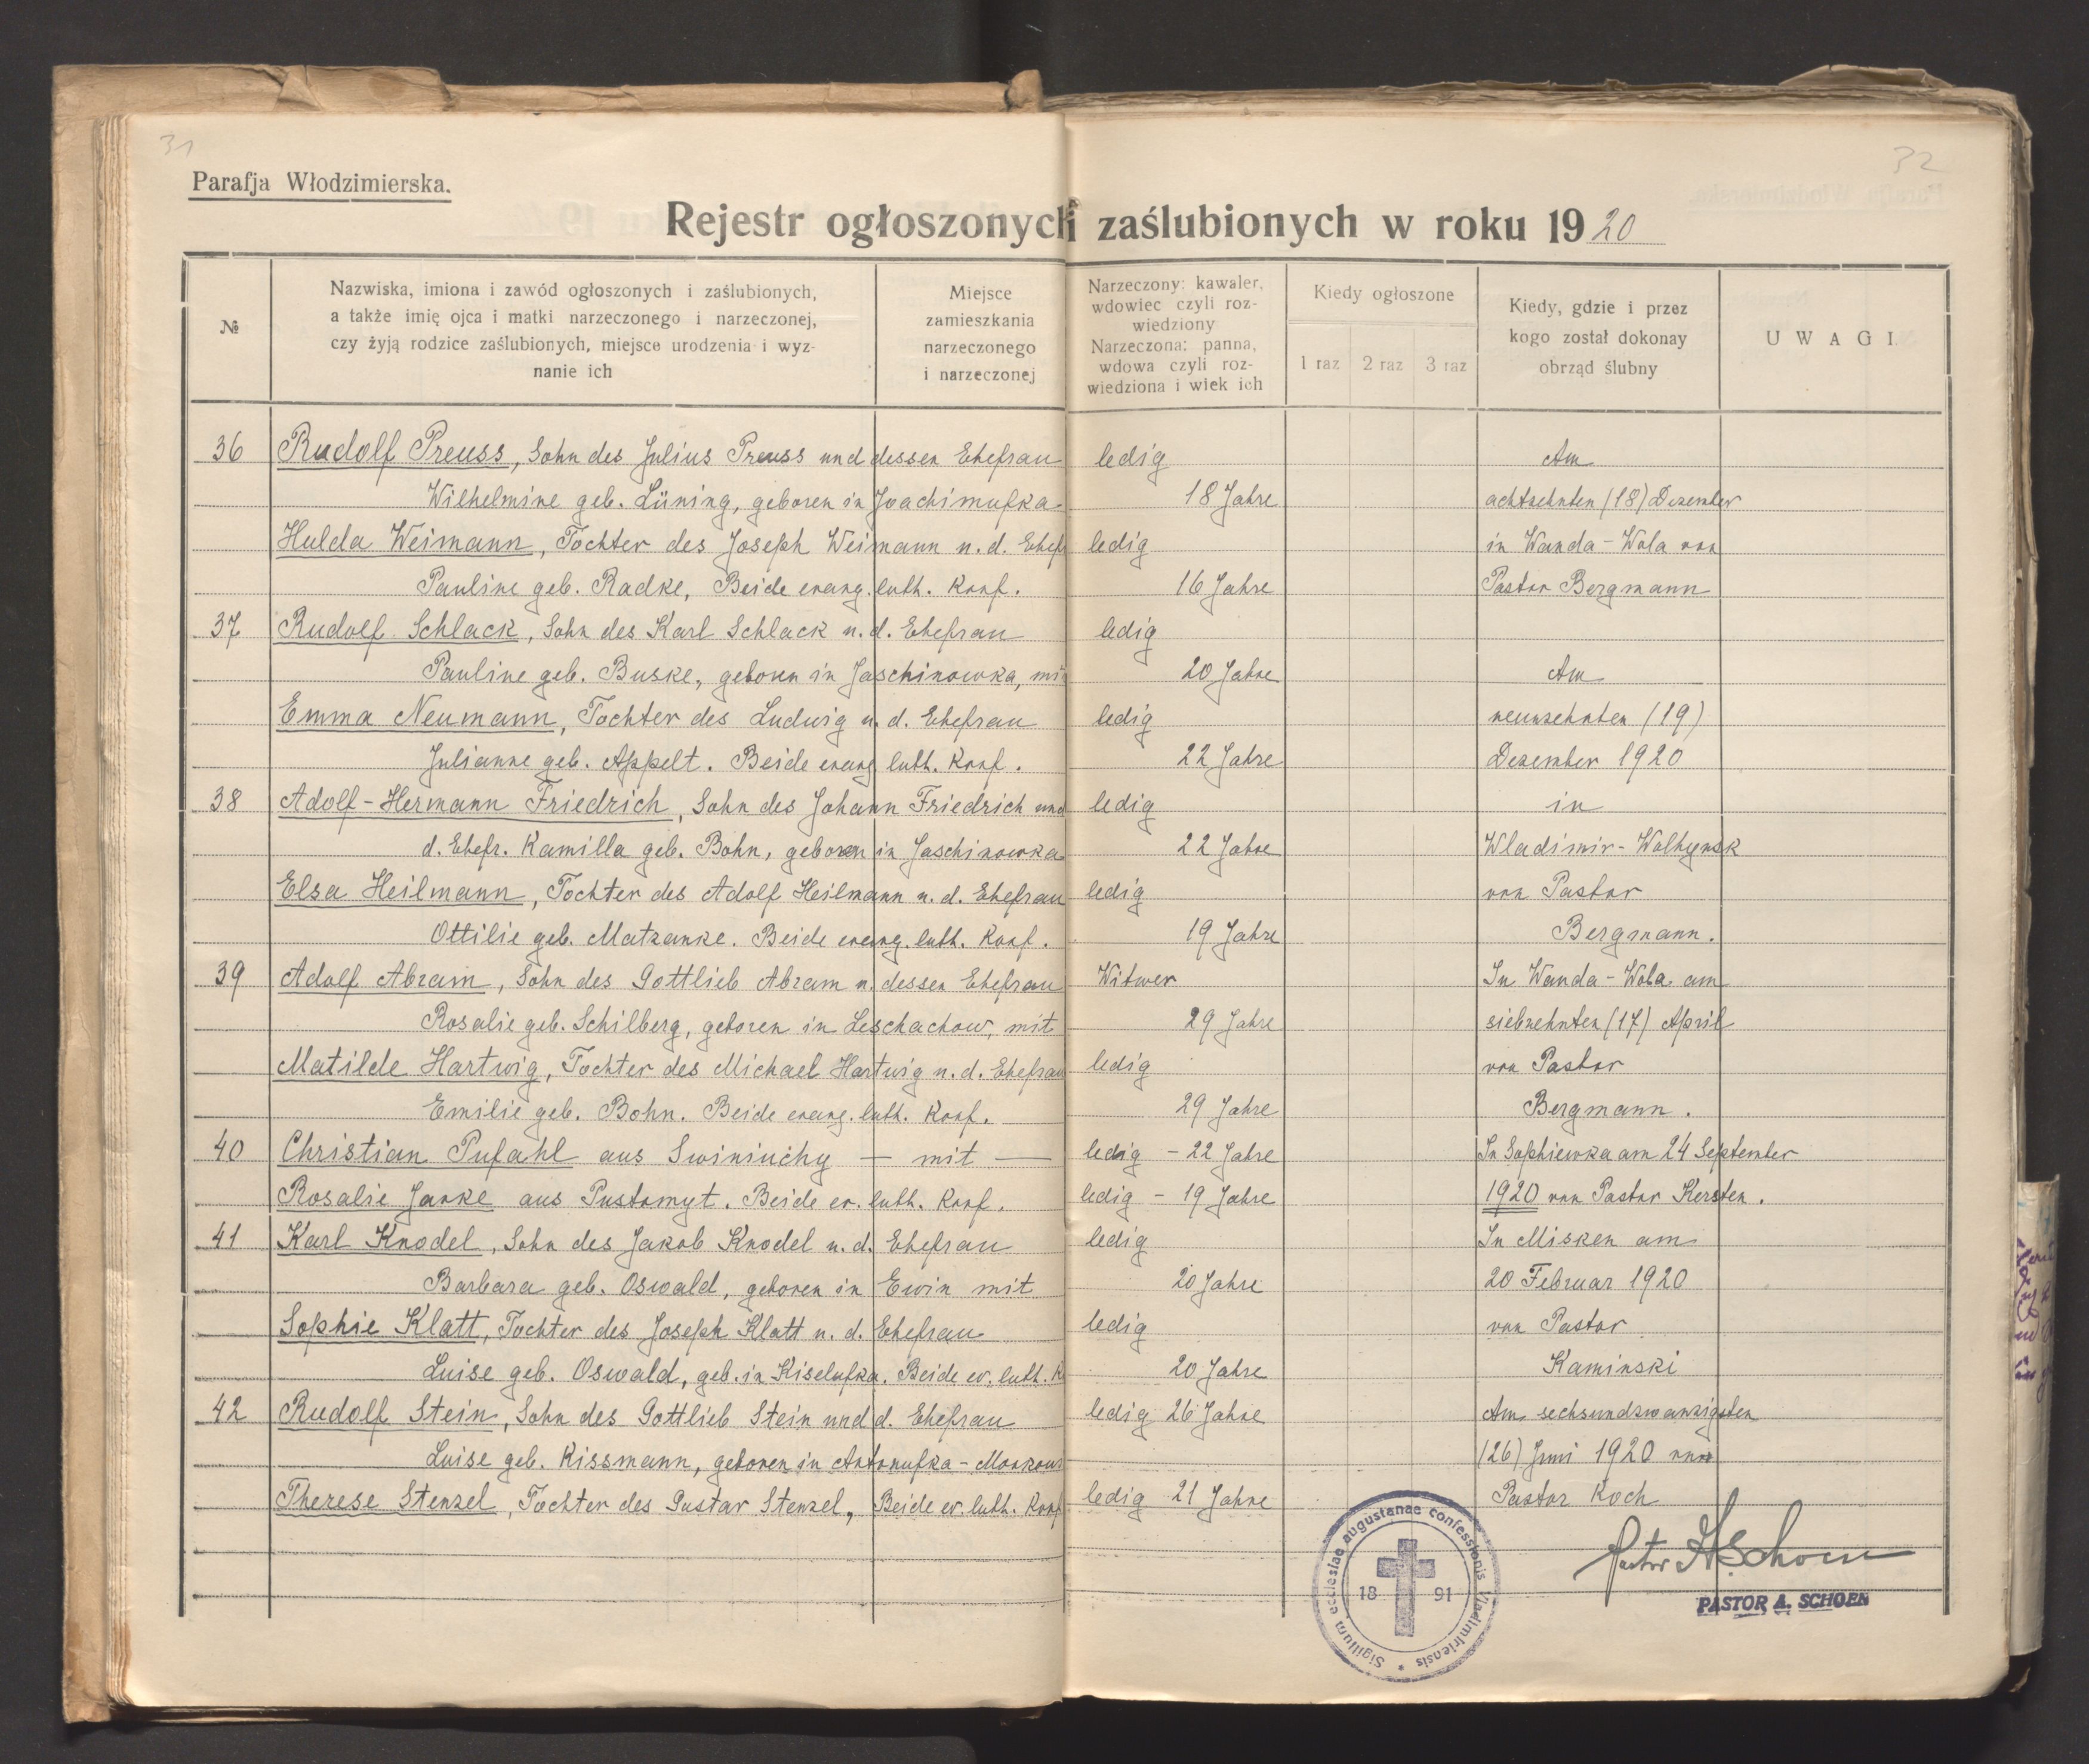 31
32
Parafja Włodzimierska.
Rejestr ogłoszonych i zaślubionych w roku 1920
№
Nazwiska, imiona i zawód ogłoszonych i zaślubionych,
a także imię ojca i matki narzeczonego i narzeczonej,
czy żyją rodzice zaślubionych, miejsce urodzenia i wyz-
nanie ich
Miejsce
zamieszkania
narzeczonego
i narzeczonej
Narzeczony: kawaler,
wdowiec czyli roz-
wiedziony
Narzeczona: panna,
wdowa czyli roz-
wiedziona i wiek ich
Kiedy ogłoszone
1 raz 2 raz 3 raz
Kiedy, gdzie i przez
kogo został dokonay
obrząd ślubny
UWAGI.
36 Rudolf Preuss, Sohn des Julius Preuss und dessen Ehefrau ledig Am
Wilhelmine geb. Lüning, geboren in Joachimufka 18 Jahre achtzehnten (18) Dezember
Hulda Weimann, Tochter des Joseph Weimann u. d. Ehef ledig in Wanda-Wola von
Pauline geb. Radke, Beide evang. luth. Konf. 16 Jahre Pastor Bergmann
37 Rudolf Schlack, Sohn des Karl Schlack u. d. Ehefrau ledig
Pauline geb. Buske, geboren in Jaschinowka, mit 20 Jahre Am
Emma Neumann, Tochter des Ludwig u. d. Ehefrau ledig neunzehnten (19)
Julianne geb. Appelt. Beide evang luth. Konf. 22 Jahre Dezember 1920
38 Adolf-Hermann Friedrich, Sohn des Johann Friedrich und ledig in
d. Ehefr. Kamilla geb. Bohn, geboren in Jaschinowka 22 Jahre Wladimir-Wolhynsk
Elsa Heilmann, Tochter des Adolf Heilmann u. d. Ehefrau ledig von Pastor
Ottilie geb. Matzanke. Beide evang. luth. Konf. 19 Jahre Bergmann.
39 Adolf Abram, Sohn des Gottlieb Abram u. dessen Ehefrau Witwer In Wanda-Wola am
Rosalie geb. Schilberg, geboren in Leschachow, mit 29 Jahre siebzehnten (17) April
Matilde Hartwig, Tochter des Michael Hartwig u. d. Ehefrau ledig von Pastor
Emilie geb. Bohn. Beide evang. luth. Konf. 29 Jahre Bergmann.
40 Christian Pufahl aus Swiniuchy — mit — ledig - 22 Jahre In Sophiewka am 24 September
Rosalie Janke aus Pustomyt. Beide ev. luth. Konf. ledig - 19 Jahre 1920 von Pastor Kersten.
41 Karl Knodel, Sohn des Jakob Knodel u. d. Ehefrau ledig In Misken am
Barbara geb. Oswald, geboren in Ewin mit 20 Jahre 20 Februar 1920
Sophie Klatt, Tochter des Joseph Klatt u. d. Ehefrau ledig von Pastor
Luise geb. Oswald, geb. in Kiselufka. Beide ev. luth. K 20 Jahre Kaminski
42 Rudolf Stein, Sohn des Gottlieb Stein und d. Ehefrau ledig 26 Jahre Am sechsundzwanzigsten
Luise geb. Kissmann, geboren in Antonufka- (26) Juni 1920 von
Therese Stenzel, Tochter des Gustav Stenzel, Beide ev. luth. Konf ledig 21 Jahre Pastor Koch
Pastor A Schoen
PASTOR A. SCHOEN
Sigillum ecclesiae augustanae confessionis Vladimiriensis *
18 91